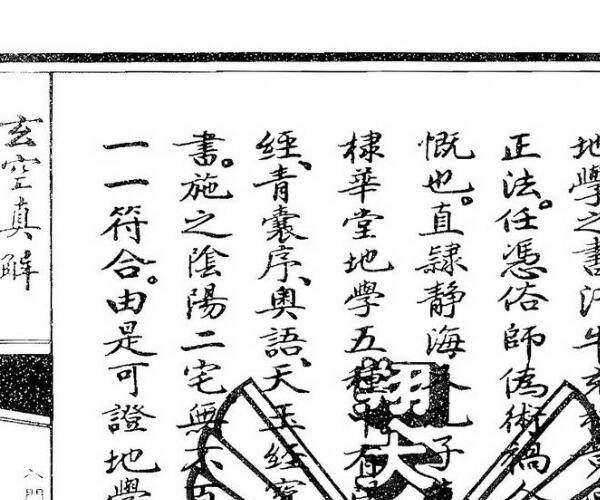 地學之書汗牛充
正法。任憑俗師偽術禍人
慨也。直隸靜海孔子
棣華堂地學五種
經、青囊序、奧語、天玉經、寶
書。施之陰陽二宅無不百
一一符合。由是可證地學
玄空真解
入門